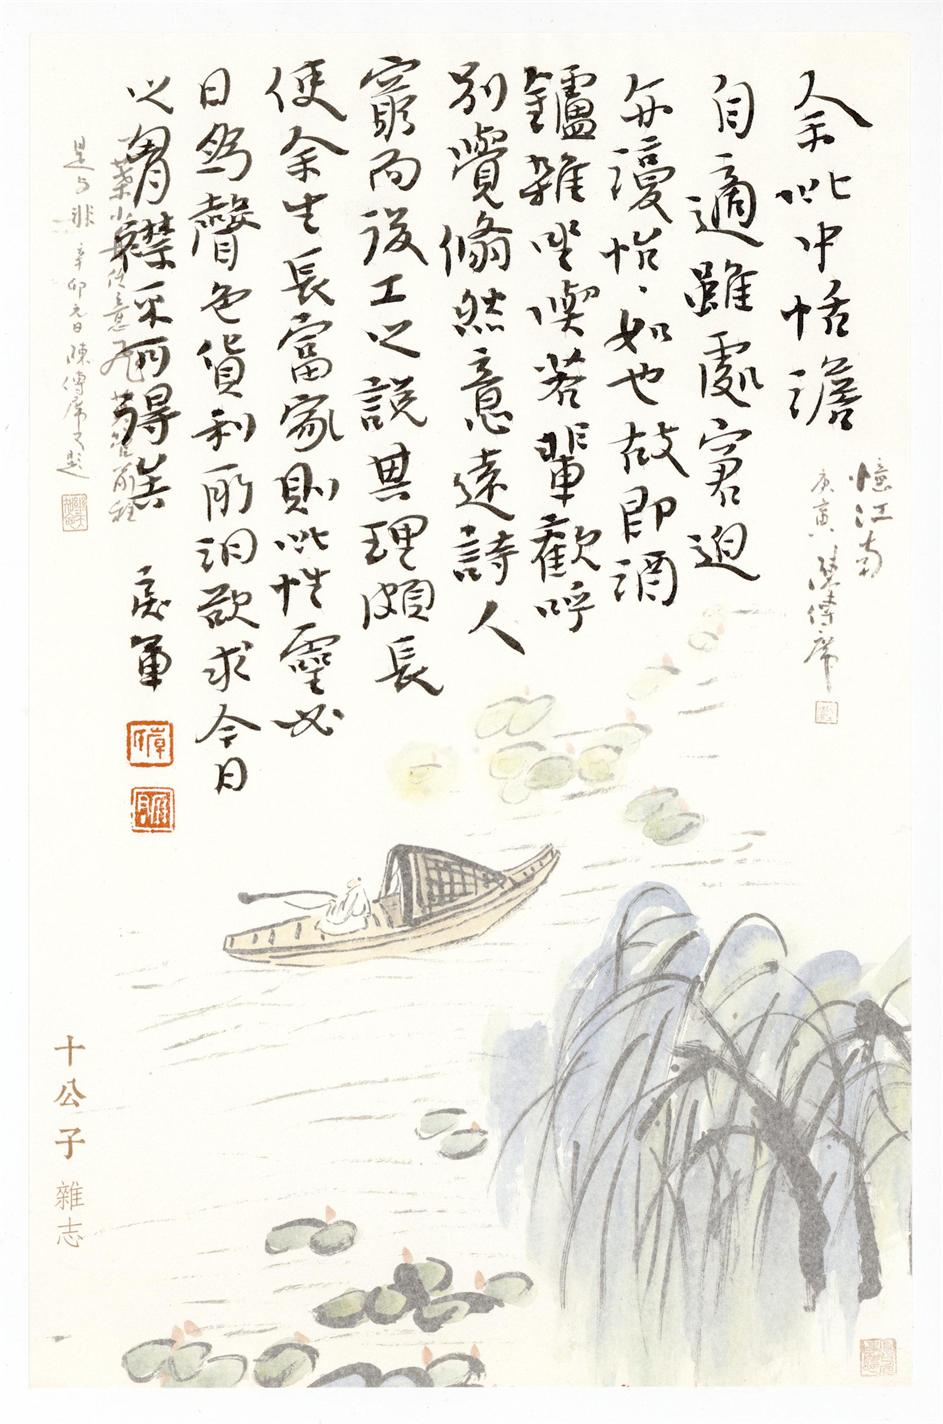 余此中恬澹
自適雖處窘迫
每謾怡〻如也故即酒
鑪雜坐喫若輩歡呼
別覺翛然意遠詩人
窮而後工之說其理頗長
使余生長富家則此性靈必
日為聲色貨利所汩欲求今日
之胸襟不可得矣
憶江南
庚寅 陳傳席
一葉小舟任意飛 莫管前程
是與非 辛卯元日陳傳席又題
十公子 雜志